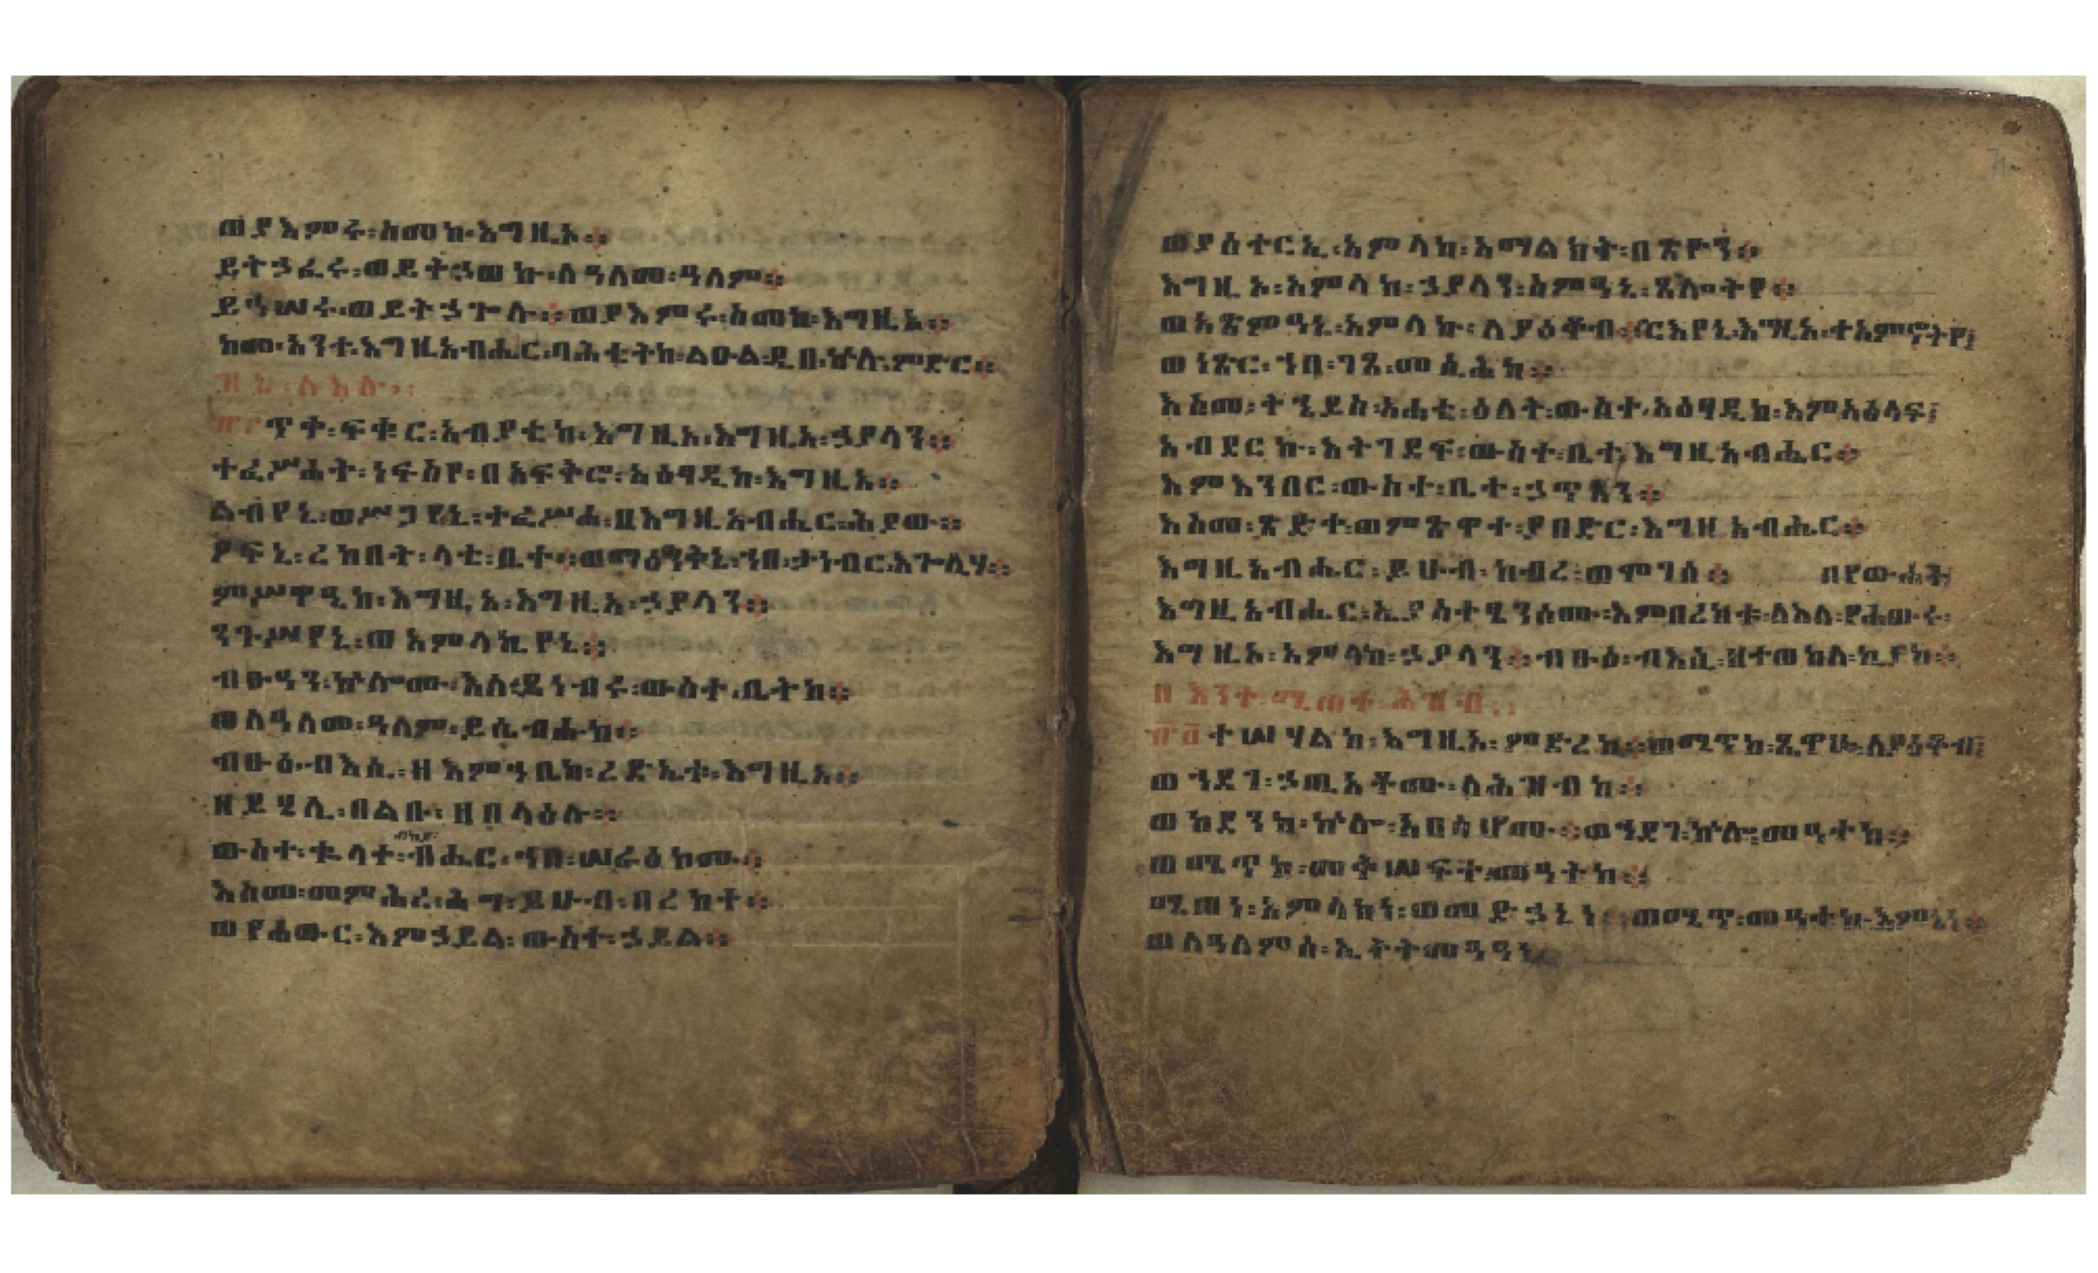 ወያእምሩ፡ስመከ፡እግዚኦ።
ይትኃፈሩ፡ወይትኃወኩ፡ለዓለመ፡ዓለም።
ይኅሠሩ፡ወይትኃጐሉ።ወያእምሩ፡ስመከ፡እግዚኦ።
ከመ፡አንተ፡እግዚአብሔር፡ባሕቲትከ፡ልዑል፡ዲበ፡ኵሉ፡ምድር።
ጥቀ፡ፍቁር፡አብያቲከ፡እግዚኦ፡እግዚአ፡ኃያላን።
ተፈሥሐት፡ነፍስየ፡በአፍቅሮ፡አዕፃዲከ፡እግዚኦ።
ልብየኒ፡ወሥጋየኒ፡ተፈሥሐ፡በእግዚአብሔር፡ሕያው።
ዖፍኒ፡ረከበት፡ላቲ፡ቤተ።ወማዕነቅኒ፡ኀበ፡ታነብር፡እጕሊሃ።
ምሥዋዒከ፡እግዚኦ፡እግዚአ፡ኃያላን።
ንጉሥየኒ፡ወአምላኪየኒ።
ብፁዓን፡ኵሎሙ፡እለ፡ይነብሩ፡ውስተ፡ቤትከ።
ወለዓለመ፡ዓለም፡ይሴብሑከ።
ብፁዕ፡ብእሲ፡ዘእምኀቤከ፡ረድኤቱ፡እግዚኦ።
ዘይሄሊ፡በልቡ፡ዘበላዕሉ።
ውስተ፡ቈላተ፡ብሔር፡ኀበ፡ሠራዕከሙ።
እስመ፡መምሕረ፡ሕግ፡ይሁብ፡በረከተ።
ወየሐውር፡እምኃይል፡ውስተ፡ኃይል።
ወያስተርኢ፡አምላከ፡አማልክት፡በጽዮን።
እግዚኦ፡አምላከ፡ኃያላን፡ስምዓኒ፡ጸሎትየ።
ወአጽምዓኒ፡አምላኩ፡ለያዕቆብ።
ወነጽር፡ኀበ፡ገጸ፡መሲሕከ።
እስመ፡ትኄይስ፡አሐቲ፡ዕለት፡ውስተ፡አዕፃዲከ፡እምአዕላፍ፤
አብደርኩ፡እትገደፍ፡ውስተ፡ቤተ፡እግዚአብሔር።
እምእንበር፡ውስተ፡ቤተ፡ኃጥአን።
እስመ፡ጽድቀ፡ወምጽዋተ፡ያበድር፡እግዚአብሔር።
እግዚአብሔር፡ይሁብ፡ክብረ፡ወሞገሰ። በየውሐት
እግዚአብሔር፡ኢያስተፄንሰሙ፡እምበረከቱ፡ለእለ፡የሐውሩ፡
እግዚኦ፡አምላከ፡ኃያላን።ብፁዕ፡ብእሲ፡ዘተወከለ፡ኪያከ።
በእንተ፡ሚጠተ፡ሕዝብ።
ተሣሃልከ፡እግዚኦ፡ምድረከ።ወሜጥከ፡ጼዋሁ፡ለያዕቆብ፤
ወኀደገ፡ኃጢአቶሙ፡ለሕዝብከ።
ወከደንከ፡ኵሎ፡አበሳሆሙ።ወኀደገ፡ኵሎ፡መዓተከ።
ወሜጥከ፡መቅሠፍተ፡መዓትከ።
ሚጠነ፡አምላክነ፡ወመድኃኒነ።ወሚጥ፡መዓተከ፡እምኔነ።
ወለዓለምሰ፡ኢትትመዓዓነ